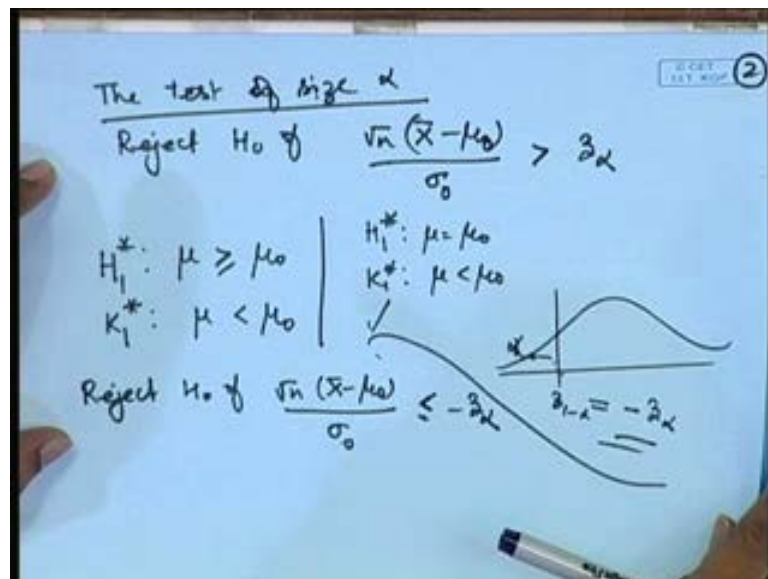 The test of size α
Reject H₀ if √n (x̄ - μ₀) / σ₀ > z_α
H₁*: μ ≥ μ₀
K₁*: μ < μ₀
H₁*: μ = μ₀
K₁*: μ < μ₀
α
z_{1-α} = -z_α
Reject H₀ if √n (x̄ - μ₀) / σ₀ ≤ -z_α
2